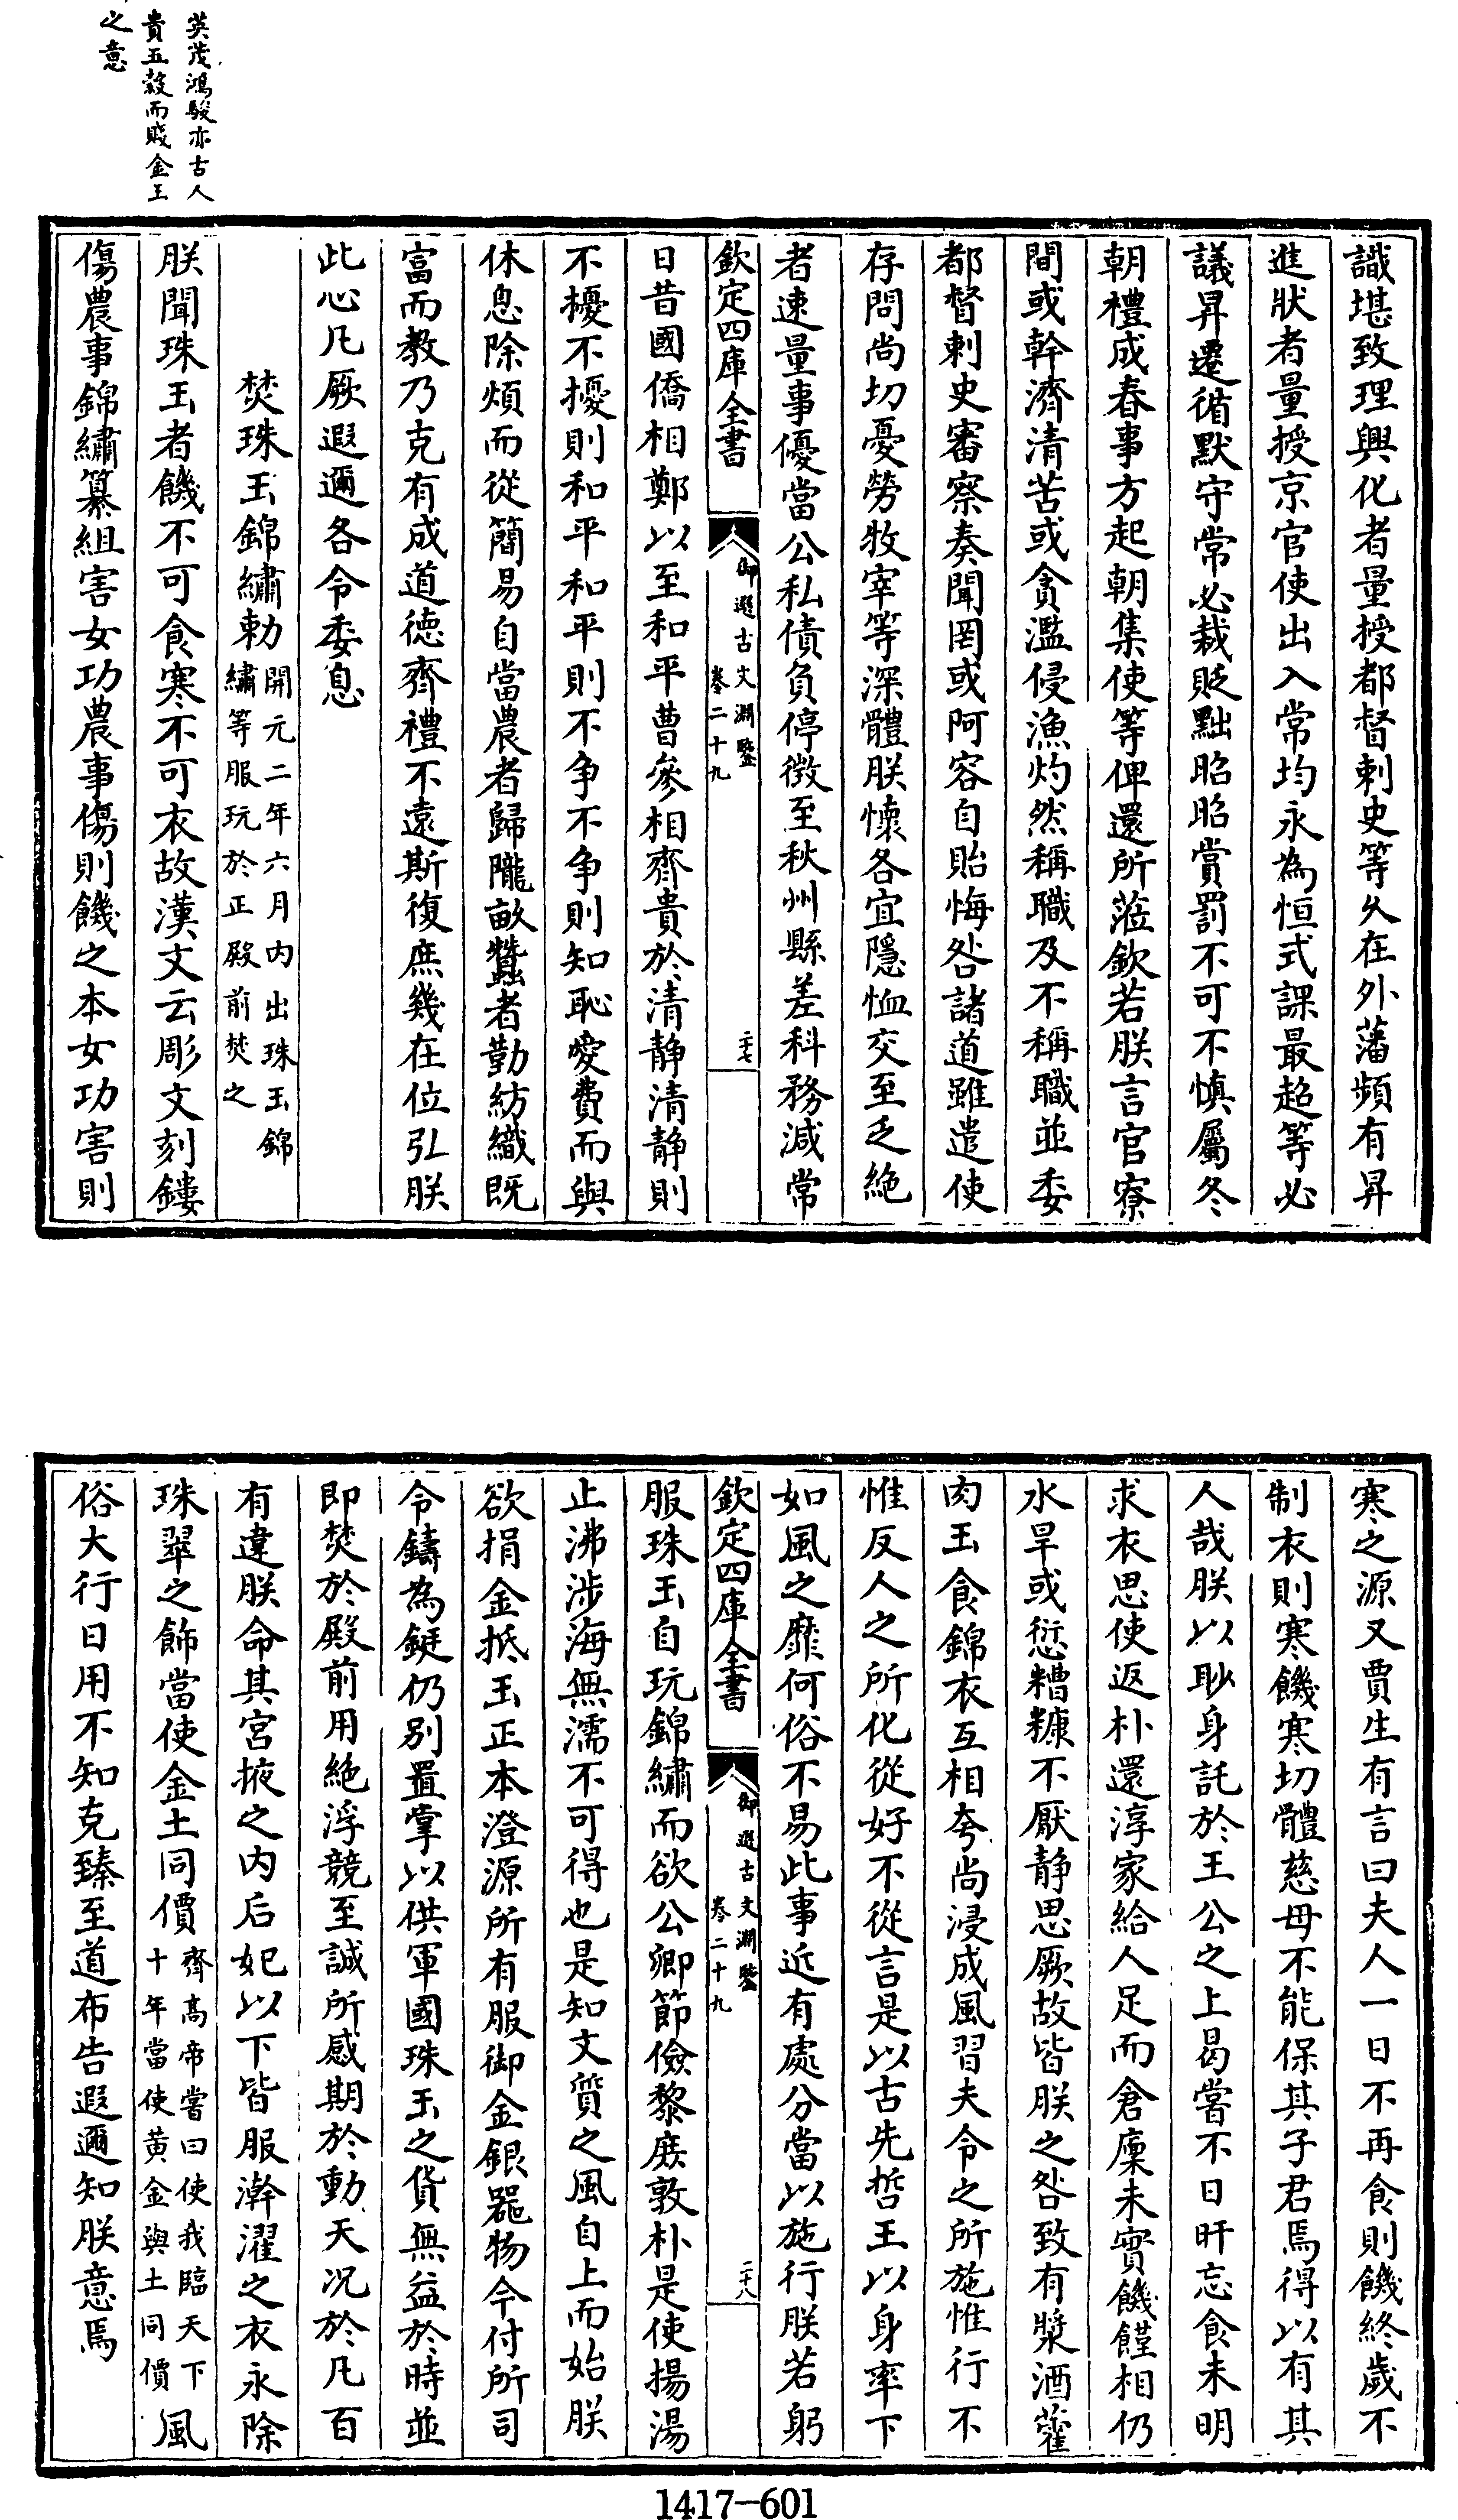 英茂鴻駿亦古人
貴五穀而賤金玉
之意
識堪致理興化者量授都督刺史等久在外藩頻有昇
進狀者量授京官使出入常均永為恒式課最超等必
議昇遷循默守常必裁貶黜昭昭賞罰不可不慎屬冬
朝禮成春事方起朝集使等俾還所蒞欽若朕言官寮
間或幹濟清苦或貪濫侵漁灼然稱職及不稱職並委
都督刺史審察奏聞罔或阿容自貽悔咎諸道雖遣使
存問尚切憂勞牧宰等深體朕懷各宜隱恤交至乏絶
者速量事優當公私債負停徴至秋州縣差科務減常
欽定四庫全書
御選古文淵鑒
卷二十九
二十七
日昔國僑相鄭以至和平曹參相齊貴於清静清静則
不擾不擾則和平和平則不争不争則知恥愛費而與
休息除煩而從簡易自當農者歸隴畝蠶者勤紡織既
富而教乃克有成道德齊禮不遠斯復庶幾在位弘朕
此心凡厥遐邇各令委息
焚珠玉錦繡勅開元二年六月内出珠玉錦
繡等服玩於正殿前焚之
朕聞珠玉者饑不可食寒不可衣故漢文云彫文刻鏤
傷農事錦繡纂組害女功農事傷則饑之本女功害則
寒之源又賈生有言曰夫人一日不再食則饑終歲不
制衣則寒饑寒切體慈母不能保其子君焉得以有其
人哉朕以眇身託於王公之上曷嘗不日旰忘食未明
求衣思使返朴還淳家給人足而倉廩未實饑饉相仍
水旱或愆糟糠不厭静思厥故皆朕之咎致有漿酒藿
肉玉食錦衣互相夸尚浸成風習夫令之所施惟行不
惟反人之所化從好不從言是以古先哲王以身率下
如風之靡何俗不易此事近有處分當以施行朕若躬
欽定四庫全書
御選古文淵鑒
卷二十九
二十八
服珠玉自玩錦繡而欲公卿節儉黎庶敦朴是使揚湯
止沸涉海無濡不可得也是知文質之風自上而始朕
欲捐金抵玉正本澄源所有服御金銀器物今付所司
令鑄為鋌仍别置掌以供軍國珠玉之貨無益於時並
即焚於殿前用絶浮競至誠所感期於動天况於凡百
有違朕命其宮掖之内后妃以下皆服澣濯之衣永除
珠翠之飾當使金土同價齊高帝嘗曰使我臨天下
十年當使黄金與土同價風
俗大行日用不知克臻至道布告遐邇知朕意焉
1417—601